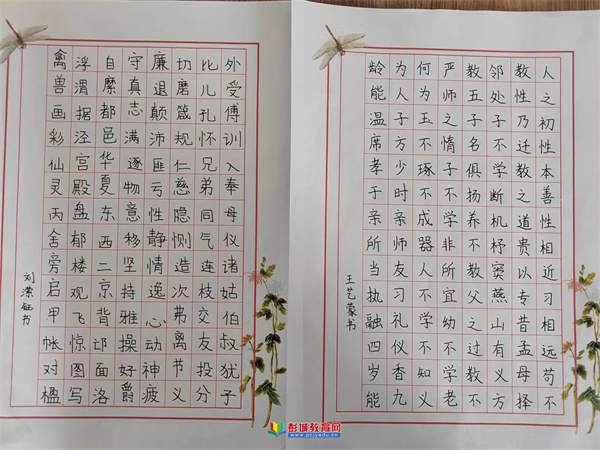 人之初性本善性相近习相远苟不
教性乃迁教之道贵以专昔孟母择
邻处子不学断机杼窦燕山有义方
教五子名俱扬养不教父之过教不
严师之惰子不学非所宜幼不学老
何为玉不琢不成器人不学不知义
为人子方少时亲师友习礼仪香九
龄能温席孝于亲所当执融四岁能
王艺蒙书
外受傅训入奉母仪诸姑伯叔犹子
比儿孔怀兄弟同气连枝交友投分
切磨箴规仁慈隐恻造次弗离节义
廉退颠沛匪亏性静情逸心动神疲
守真志满逐物意移坚持雅操好爵
自縻都邑华夏东西二京背邙面洛
浮渭据泾宫殿盘郁楼观飞惊图写
禽兽画彩仙灵丙舍旁启甲帐对楹
彭城教育网